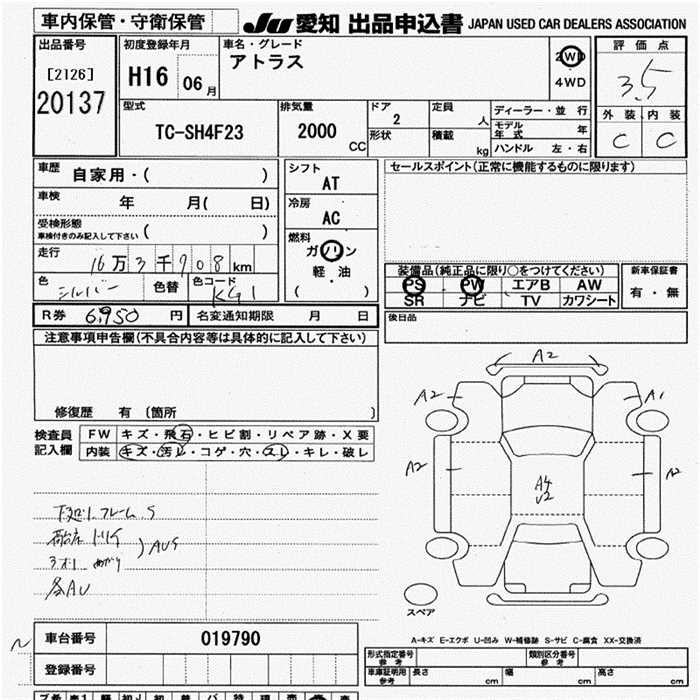 車内保管・守衛保管
JU 愛知 出品申込書 JAPAN USED CAR DEALERS ASSOCIATION
出品番号
[2126]
20137
初度登録年月
H16 06月
車名・グレード
アトラス
2WD
4WD
評価点
3.5
外装 内装
C C
型式
TC-SH4F23
排気量
2000 CC
ドア
2
形状
定員 人
積載 kg
ディーラー・並行
モデル年式 年
ハンドル 左・右
車歴 自家用・( )
車検 年 月( 日)
受検形態
車検付きのみ記入して下さい ( )
走行 16万3千908km
色 シルバー 色替 色コード KG1
シフト
AT
冷房
AC
燃料
ガソリン
軽・油
( )
セールスポイント(正常に機能するものに限ります)
装備品(純正品に限り○をつけてください)
PS PW エアB AW
SR ナビ TV カワシート
新車保証書
有・無
R券 6,950円 名変通知期限 月 日
後日品
注意事項申告欄(不具合内容等は具体的に記入して下さい)
修復歴 有 〔箇所 〕
検査員記入欄
FW キズ・飛石・ヒビ割・リペア跡・X要
内装 キズ・汚レ・コゲ・穴・スレ・キレ・破レ
下廻り フレーム S
荷台床
AUS
各AU
A2
A2
A1
A2
A2
A4
U2
スペア
A-キズ E-エクボ U-凹み W-補修跡 S-サビ C-腐食 XX-交換済
車台番号 019790
登録番号
型式指定番号 参考
類別区分番号 参考
車庫証明用 参考
長さ cm 幅 cm 高さ cm